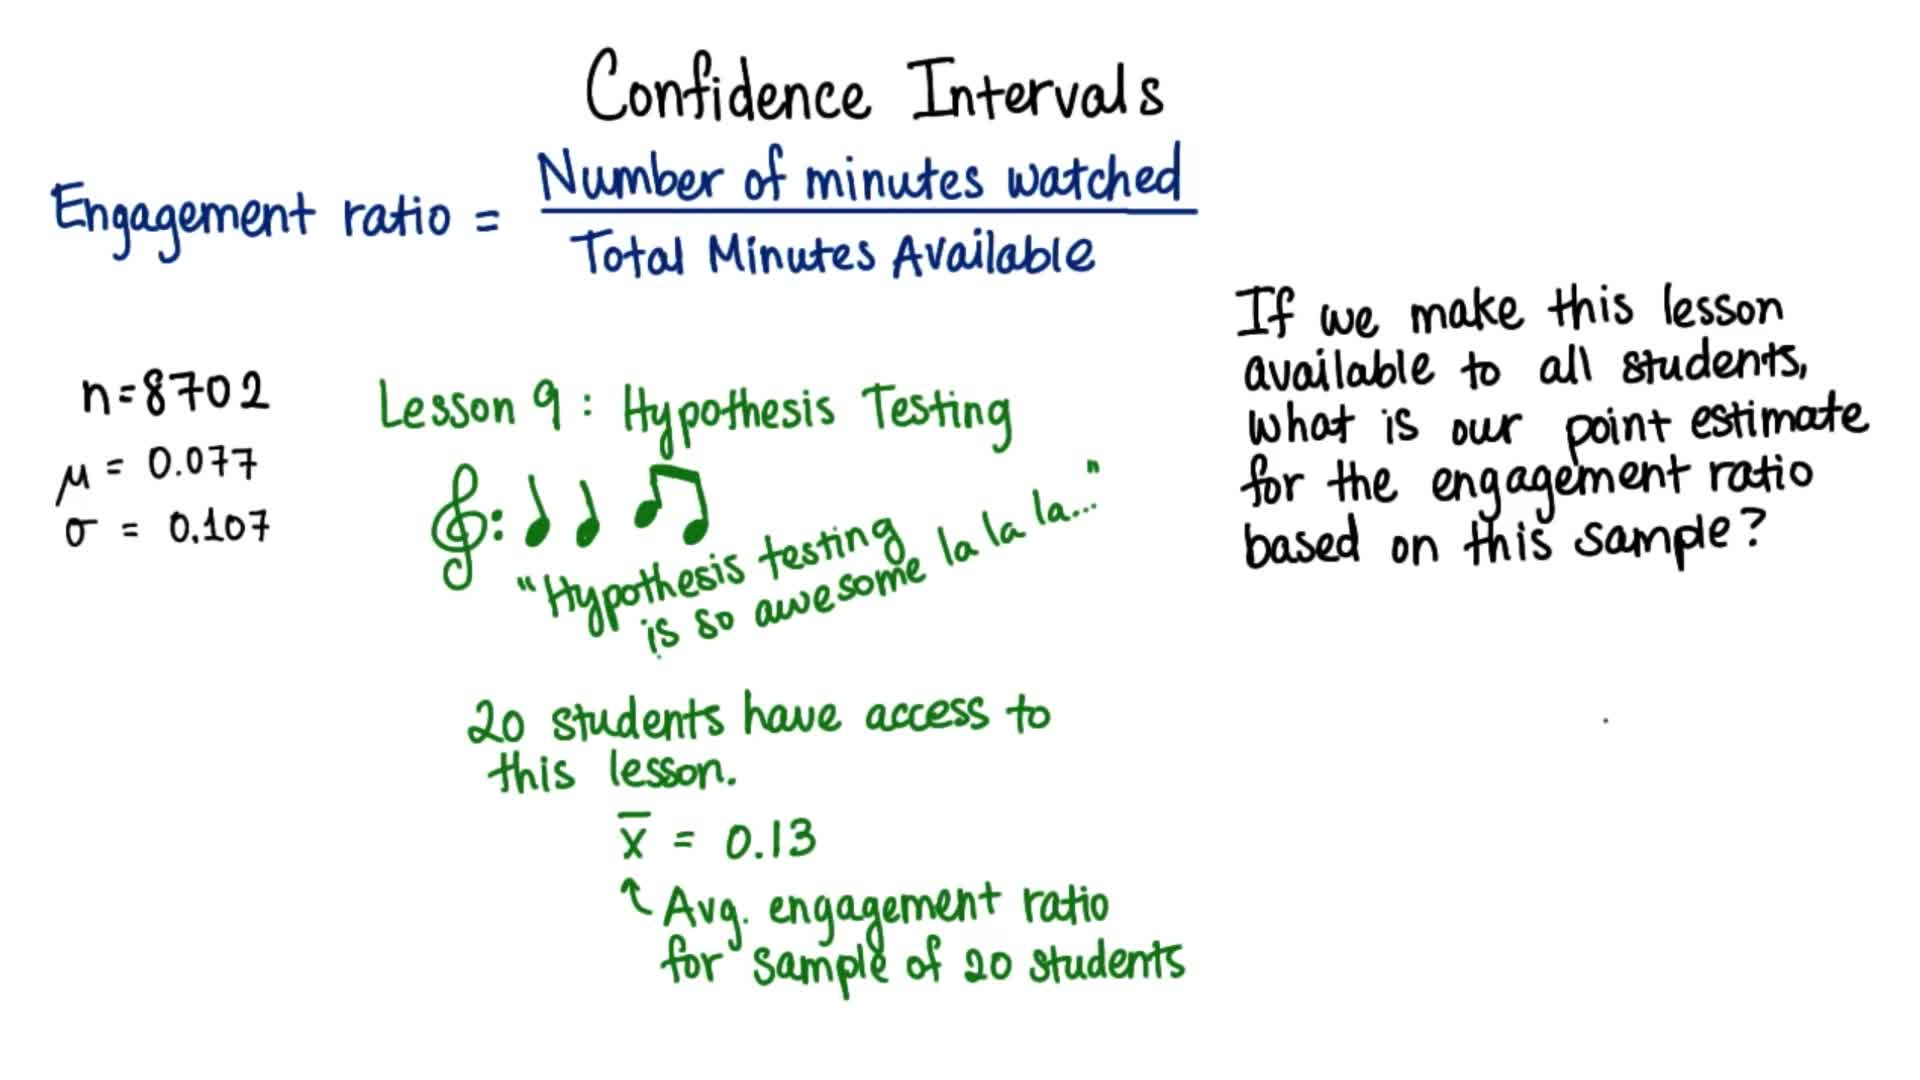 Confidence Intervals
Engagement ratio = Number of minutes watched
Total Minutes Available
n=8702
μ = 0.077
σ = 0.107
Lesson 9: Hypothesis Testing
"Hypothesis testing
is so awesome la la la..."
20 students have access to
this lesson.
x̄ = 0.13
Avg. engagement ratio
for sample of 20 students
If we make this lesson
available to all students,
what is our point estimate
for the engagement ratio
based on this sample?